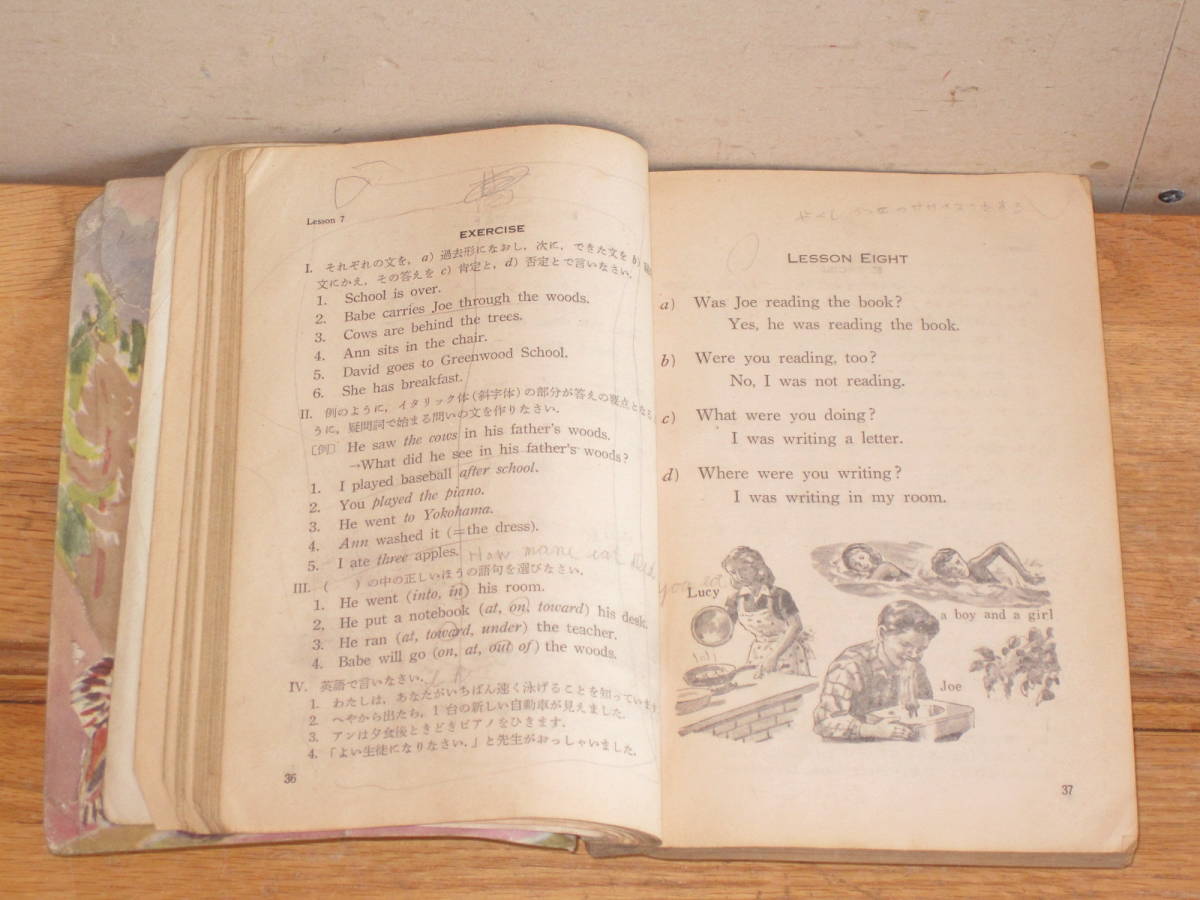 Lesson 7
EXERCISE
I. それぞれの文を, a) 過去形になおし, 次に, できた文を b)
文にかえ, その答えを c) 肯定と, d) 否定とで言いなさい.
1. School is over.
2. Babe carries Joe through the woods.
3. Cows are behind the trees.
4. Ann sits in the chair.
5. David goes to Greenwood School.
6. She has breakfast.
II. 例のように, イタリック体(斜字体)の部分が答えの要点となる
うに, 疑問詞で始まる問いの文を作りなさい.
〔例〕 He saw the cows in his father's woods.
→What did he see in his father's woods?
1. I played baseball after school.
2. You played the piano.
3. He went to Yokohama.
4. Ann washed it (=the dress).
5. I ate three apples. How mane eat did
you
III. ( )の中の正しいほうの語句を選びなさい.
1. He went (into, in) his room.
2. He put a notebook (at, on, toward) his desk.
3. He ran (at, toward, under) the teacher.
4. Babe will go (on, at, out of) the woods.
IV. 英語で言いなさい.
1. わたしは, あなたがいちばん速く泳げることを知っています
2. へやから出たら, 1台の新しい自動車が見えました.
3. アンは夕食後ときどきピアノをひきます.
4. 「よい生徒になりなさい.」と先生がおっしゃいました.
36
LESSON EIGHT
a) Was Joe reading the book?
Yes, he was reading the book.
b) Were you reading, too?
No, I was not reading.
c) What were you doing?
I was writing a letter.
d) Where were you writing?
I was writing in my room.
Lucy
a boy and a girl
Joe
37